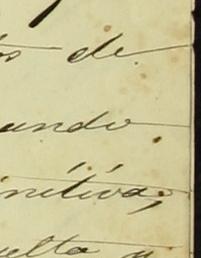 os de
undo
initiva;
uelta y